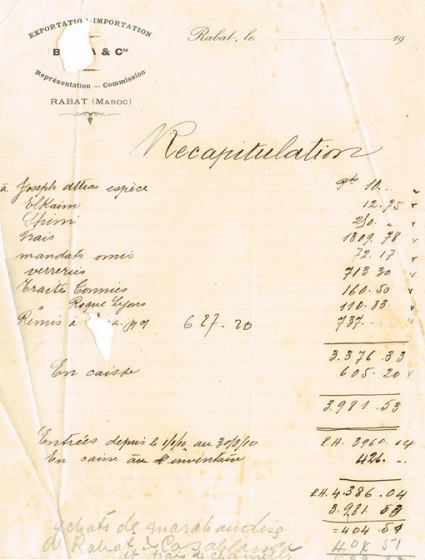 EXPORTATION-IMPORTATION
& Cie
Représentation — Commission
RABAT (MAROC)
Rabat, le 19
Recapitulation
à Joseph Attias espèce 10..
ElKaim 12.75
Chimi 250 "
frais 1309.78
mandats omis 72.17
verreries 713.30
Traites Connies 160.50
Roque Lyons 110.83
Remis à 627.20 737.-
3.376.33
En caisse 605.20
3.981.53
Entrées depuis le 1/1/10 au 30/8/10 P.H. 3960.04
En caisse au l'inventaire 426.-
P.H. 4.386.04
3.981.53
=404.51
achats de marchandise
de Rabat à Casablanca 404 51
et frais de